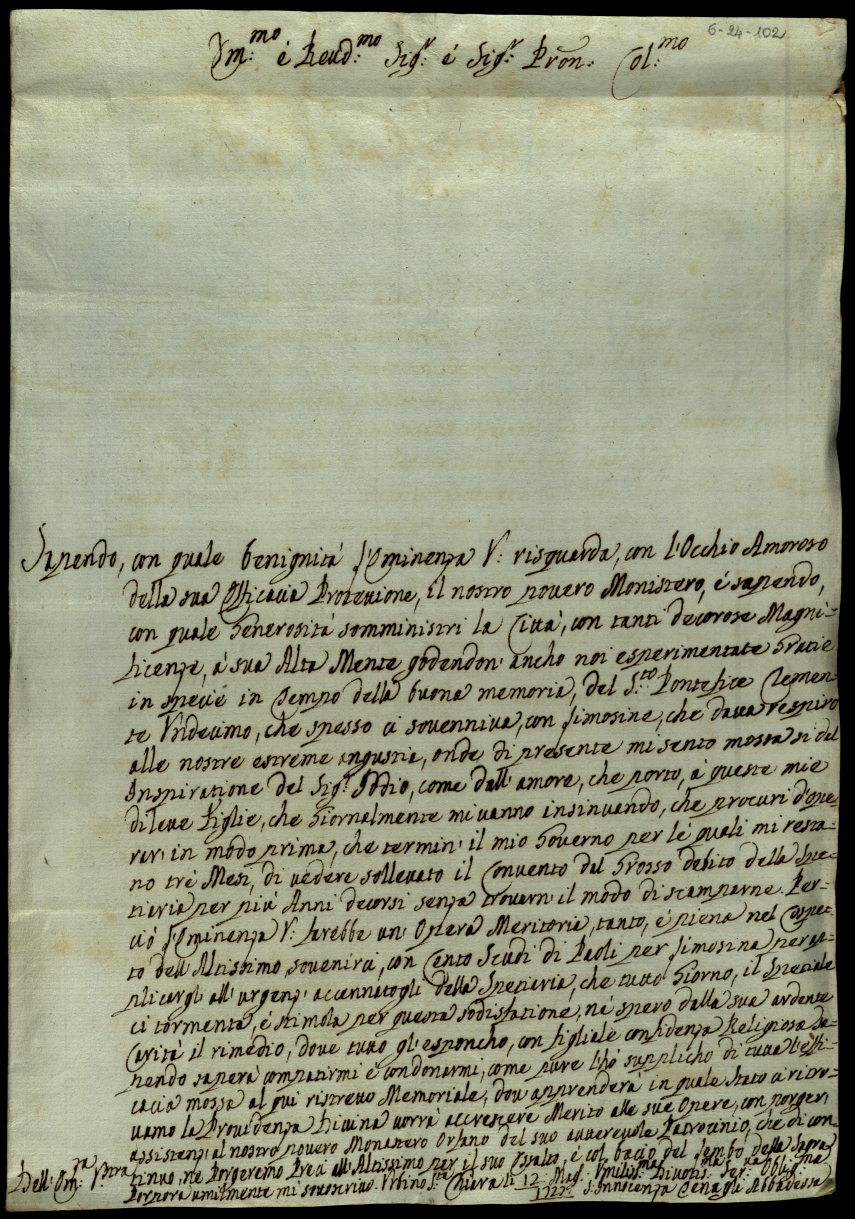 6-24-102
Em:mo é Revd:mo Sig:r é Sig:r Pron: Col:mo
Sapendo, con quale benignità l'Eminenza V: risguarda, con l'Occhio Amoroso
della sua Efficacia Protezione, il nostro povero Monistero, é sapendo,
con quale Generosità somministri la Città, con tanti decorose Magni-
ficenze, à sua Alta Mente godendon' ancho noi esperimentate Gratie
in specie in Tempo della buona memoria, del S:to Pontefice Clemen-
te Undecimo, che spesso ci sovenniva, con limosine, che dava respiro
alle nostre estreme angustia, onde di presente mi sento mossa si dal
Inspiratione del Sig:r Iddio, come dall' amore, che porto, à queste mie
dileue figlie, che Giornalmente mi vanno insinuando, che procuri d'ope-
rar' in modo prima, che termin' il mio Governo per le quali mi resta-
no tré Mesi, di vedere sollevato il Convento dal Grosso debito della Spe-
tieria per più Anni decorsi senza trovarn' il modo di scamparne. Per-
ciò l'Eminenza V: farebbe un' Opera Meritoria, tanto, é piena nel Cospec-
to dell' Altissimo, sovenirci, con Cento Scudi di Paoli per limosina per
plicargl' all' urgenz' accennatogli della Spetieria, che tutto Giorno, il Spetiale
ci tormenta, é stimola per questa sodisfatione, né spero dalla sua ardente
Carità il rimedio, dove tutto gl' esponcho, con figliale confidenza Religiosa sa-
pendo saperà compatirmi é condonarmi, come pure l'hó supplicho di tutta l'effi-
cacia mossa al qui ristretto Memoriale, dov' apprenderà in quale Stato ci ritro-
vamo la Providenza Divina vorrà accrescere Merito alle sue Opere, con porger'
assistenz' al nostro povero Monastero Orfano del suo autorevole Patrocinio, che di con-
tinuo, ne Porgeremo Preci all' Altissimo per il suo Essalto, é col bacio del Lembo della Sagra
Porpora umilmente mi sottoscrivo. Urbino S:ta Chiara li 12 Mag: 1727
Dell' Em:za V:stra
Umiliss:ma Divotis:ma Ser:va Oblig:ma
S: Innocenza Abbadessa